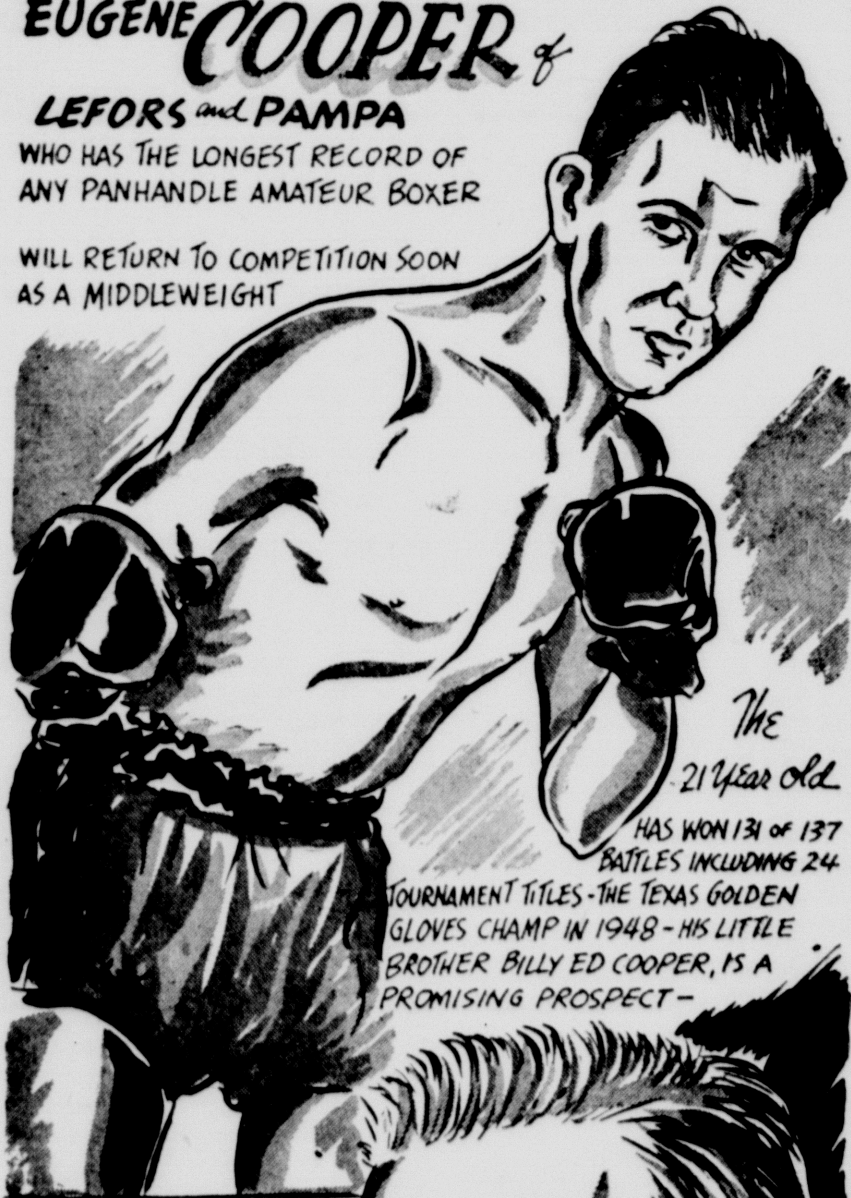 EUGENE COOPER of
LEFORS and PAMPA
WHO HAS THE LONGEST RECORD OF
ANY PANHANDLE AMATEUR BOXER
WILL RETURN TO COMPETITION SOON
AS A MIDDLEWEIGHT
The
21 Year Old
HAS WON 131 OF 137
BATTLES INCLUDING 24
TOURNAMENT TITLES-THE TEXAS GOLDEN
GLOVES CHAMP IN 1948-HIS LITTLE
BROTHER BILLY ED COOPER, IS A
PROMISING PROSPECT-